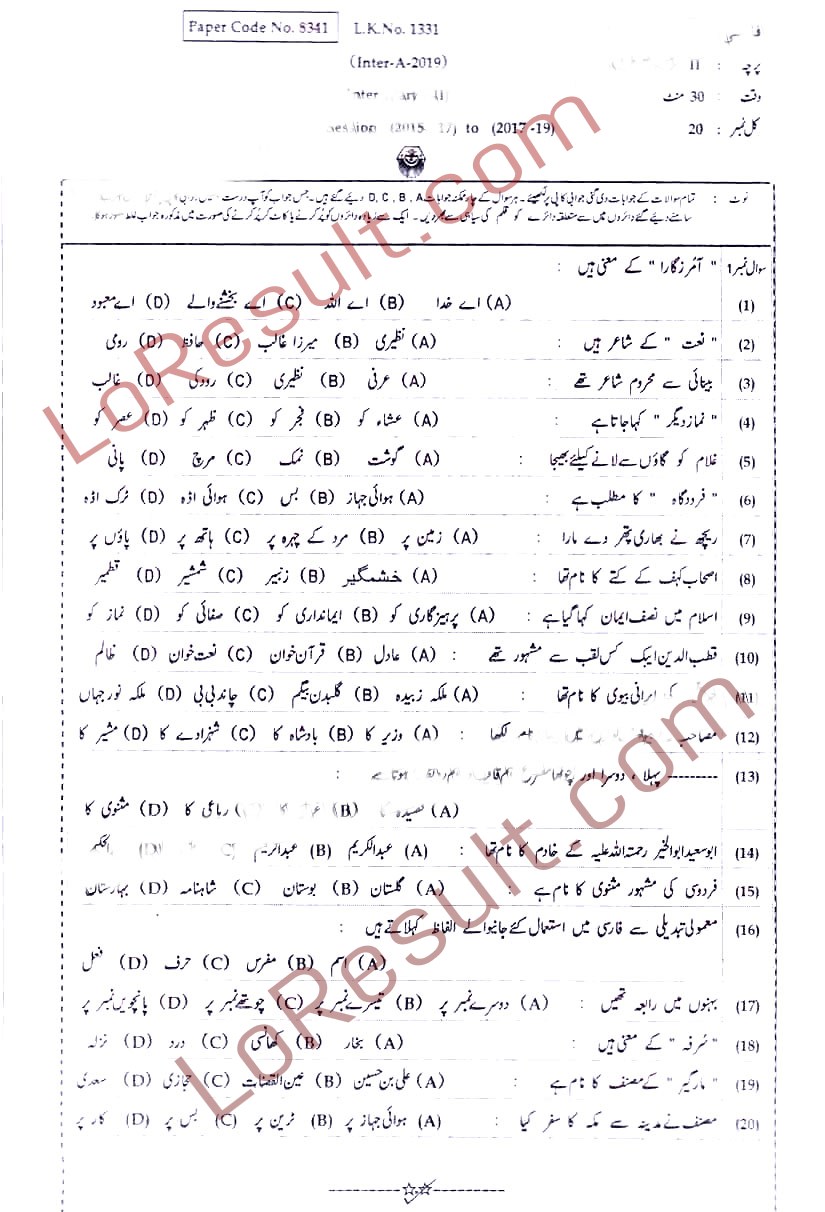 Paper Code No. 8341 L.K.No. 1331
(Inter-A-2019)
پرچہ : II
وقت : 30 منٹ
کل نمبر : 20 to (2017-19)
نوٹ : تمام سوالات کے جوابات دی گئی جوابی کاپی پر لکھیئے ۔ ہر سوال کے چار ممکنہ جوابات D, C, B, A دیئے گئے ہیں ۔ جس جواب کو آپ درست
سامنے دیئے گئے دائروں میں سے متعلقہ دائرے کو قلم کی سیاہی سے بھر دیں ۔ ایک سے زیادہ دائروں کو پُر کرنے یا کاٹ کر پُر کرنے کی صورت میں مذکورہ جواب غلط تصور ہوگا
سوال نمبر 1 " آمرزگارا " کے معنی ہیں :
(1) (A) اے خدا (B) اے اللہ (C) اے بخشنے والے (D) اے معبود
(2) " نعت " کے شاعر ہیں : (A) نظیری (B) میرزا غالب (C) حافظ (D) رومی
(3) بینائی سے محروم شاعر تھے : (A) عرفی (B) نظیری (C) رودکی (D) غالب
(4) " نماز دیگر " کہا جاتا ہے : (A) عشاء کو (B) فجر کو (C) ظہر کو (D) عصر کو
(5) غلام کو گاؤں سے لانے کیلئے بھیجا : (A) گوشت (B) نمک (C) مرچ (D) پانی
(6) " فرودگاہ " کا مطلب ہے : (A) ہوائی جہاز (B) بس (C) ہوائی اڈہ (D) ٹرک اڈہ
(7) ریچھ نے بھاری پتھر دے مارا : (A) زمین پر (B) مرد کے چہرہ پر (C) ہاتھ پر (D) پاؤں پر
(8) اصحاب کہف کے کتے کا نام تھا : (A) خشمگیر (B) زنبیر (C) شمشیر (D) قطمیر
(9) اسلام میں نصف ایمان کہا گیا ہے : (A) پرہیزگاری کو (B) ایمانداری کو (C) صفائی کو (D) نماز کو
(10) قطب الدین ایبک کس لقب سے مشہور تھے : (A) عادل (B) قرآن خوان (C) نعت خوان (D) ظالم
(11) کی ایرانی بیوی کا نام تھا : (A) ملکہ زبیدہ (B) گلبدن بیگم (C) چاند بی بی (D) ملکہ نور جہاں
(12) مصاحب لکھا : (A) وزیر کا (B) بادشاہ کا (C) شہزادے کا (D) مشیر کا
(13) --------- پہلا ، دوسرا اور ہوتا ہے :
(A) قصیدہ کا (B) (C) رباعی کا (D) مثنوی کا
(14) ابو سعید ابوالخیر رحمتہ اللہ علیہ کے خادم کا نام تھا : (A) عبدالکریم (B) عبدالرحیم (C) (D)
(15) فردوسی کی مشہور مثنوی کا نام ہے : (A) گلستان (B) بوستان (C) شاہنامہ (D) بہارستان
(16) معمولی تبدیلی سے فارسی میں استعمال کئے جانیوالے الفاظ کہلاتے ہیں :
(A) اسم (B) مفرس (C) حرف (D) فعل
(17) بہنوں میں رابعہ تھیں : (A) دوسرے نمبر پر (B) تیسرے نمبر پر (C) چوتھے نمبر پر (D) پانچویں نمبر پر
(18) " سُرفہ " کے معنی ہیں : (A) بخار (B) کھانسی (C) درد (D) نزلہ
(19) " مارگیر " کے مصنف کا نام ہے : (A) علی بن حسین (B) عین القضات (C) حجازی (D) سعدی
(20) مصنف نے مدینہ سے مکہ کا سفر کیا : (A) ہوائی جہاز پر (B) ٹرین پر (C) بس پر (D) کار پر
LoResult.com
LoResult.com